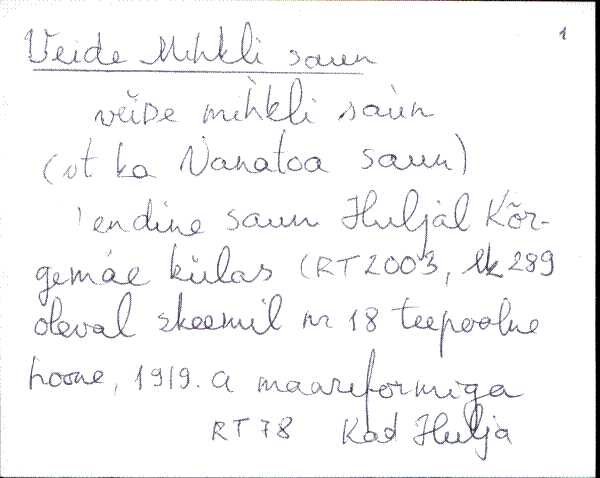 1
Veide Mihkli saun
veiDe mìhkli saùn
(vt ka Vanatoa saun)
'endine saun Huljal Kõr-
gemäe külas (RT2003, lk 289
oleval skeemil nr 18 teepoolne
hoone, 1919. a maareformiga
RT 78 Kad Hulja